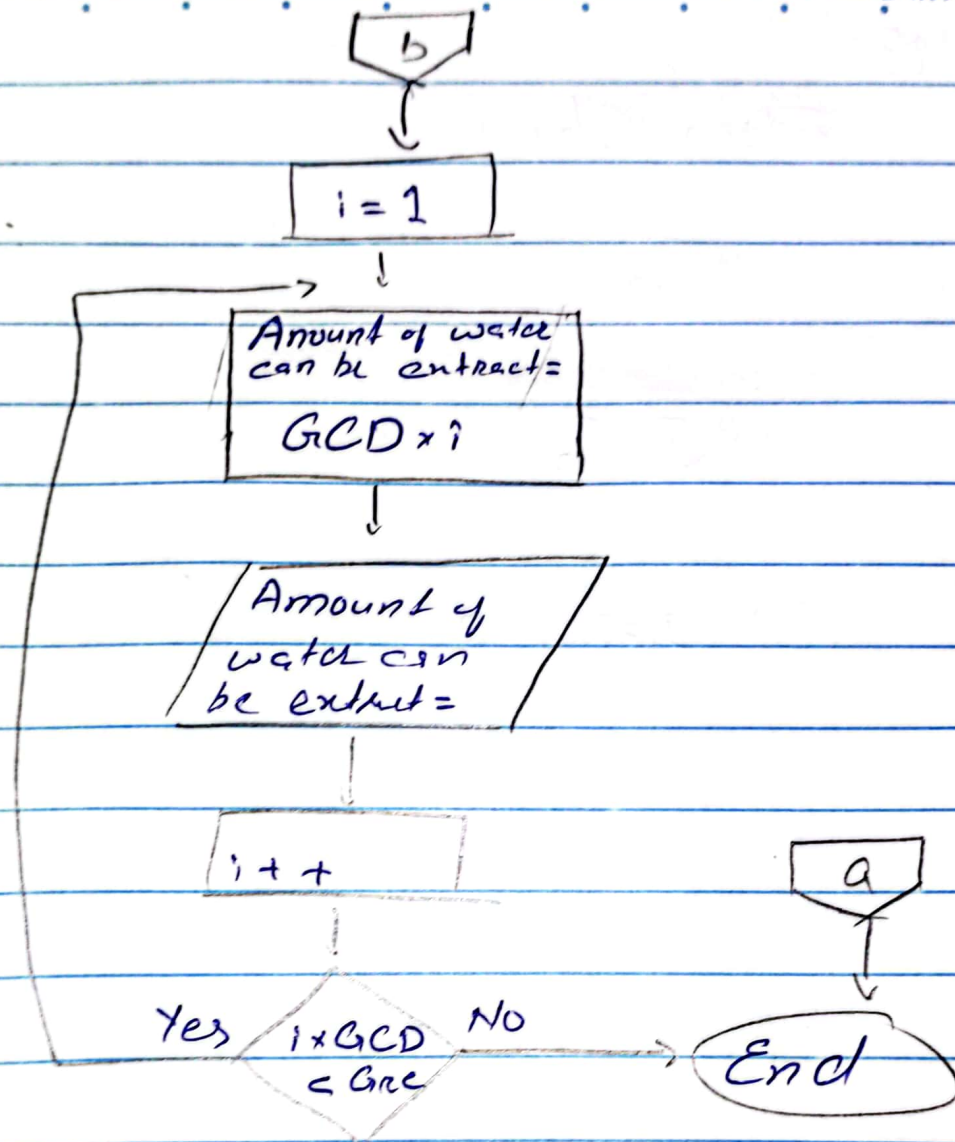 b
i = 1
Amount of water
can be extract=
GCD × i
Amount of
water can
be extract =
i + +
a
Yes
i×GCD
No
End